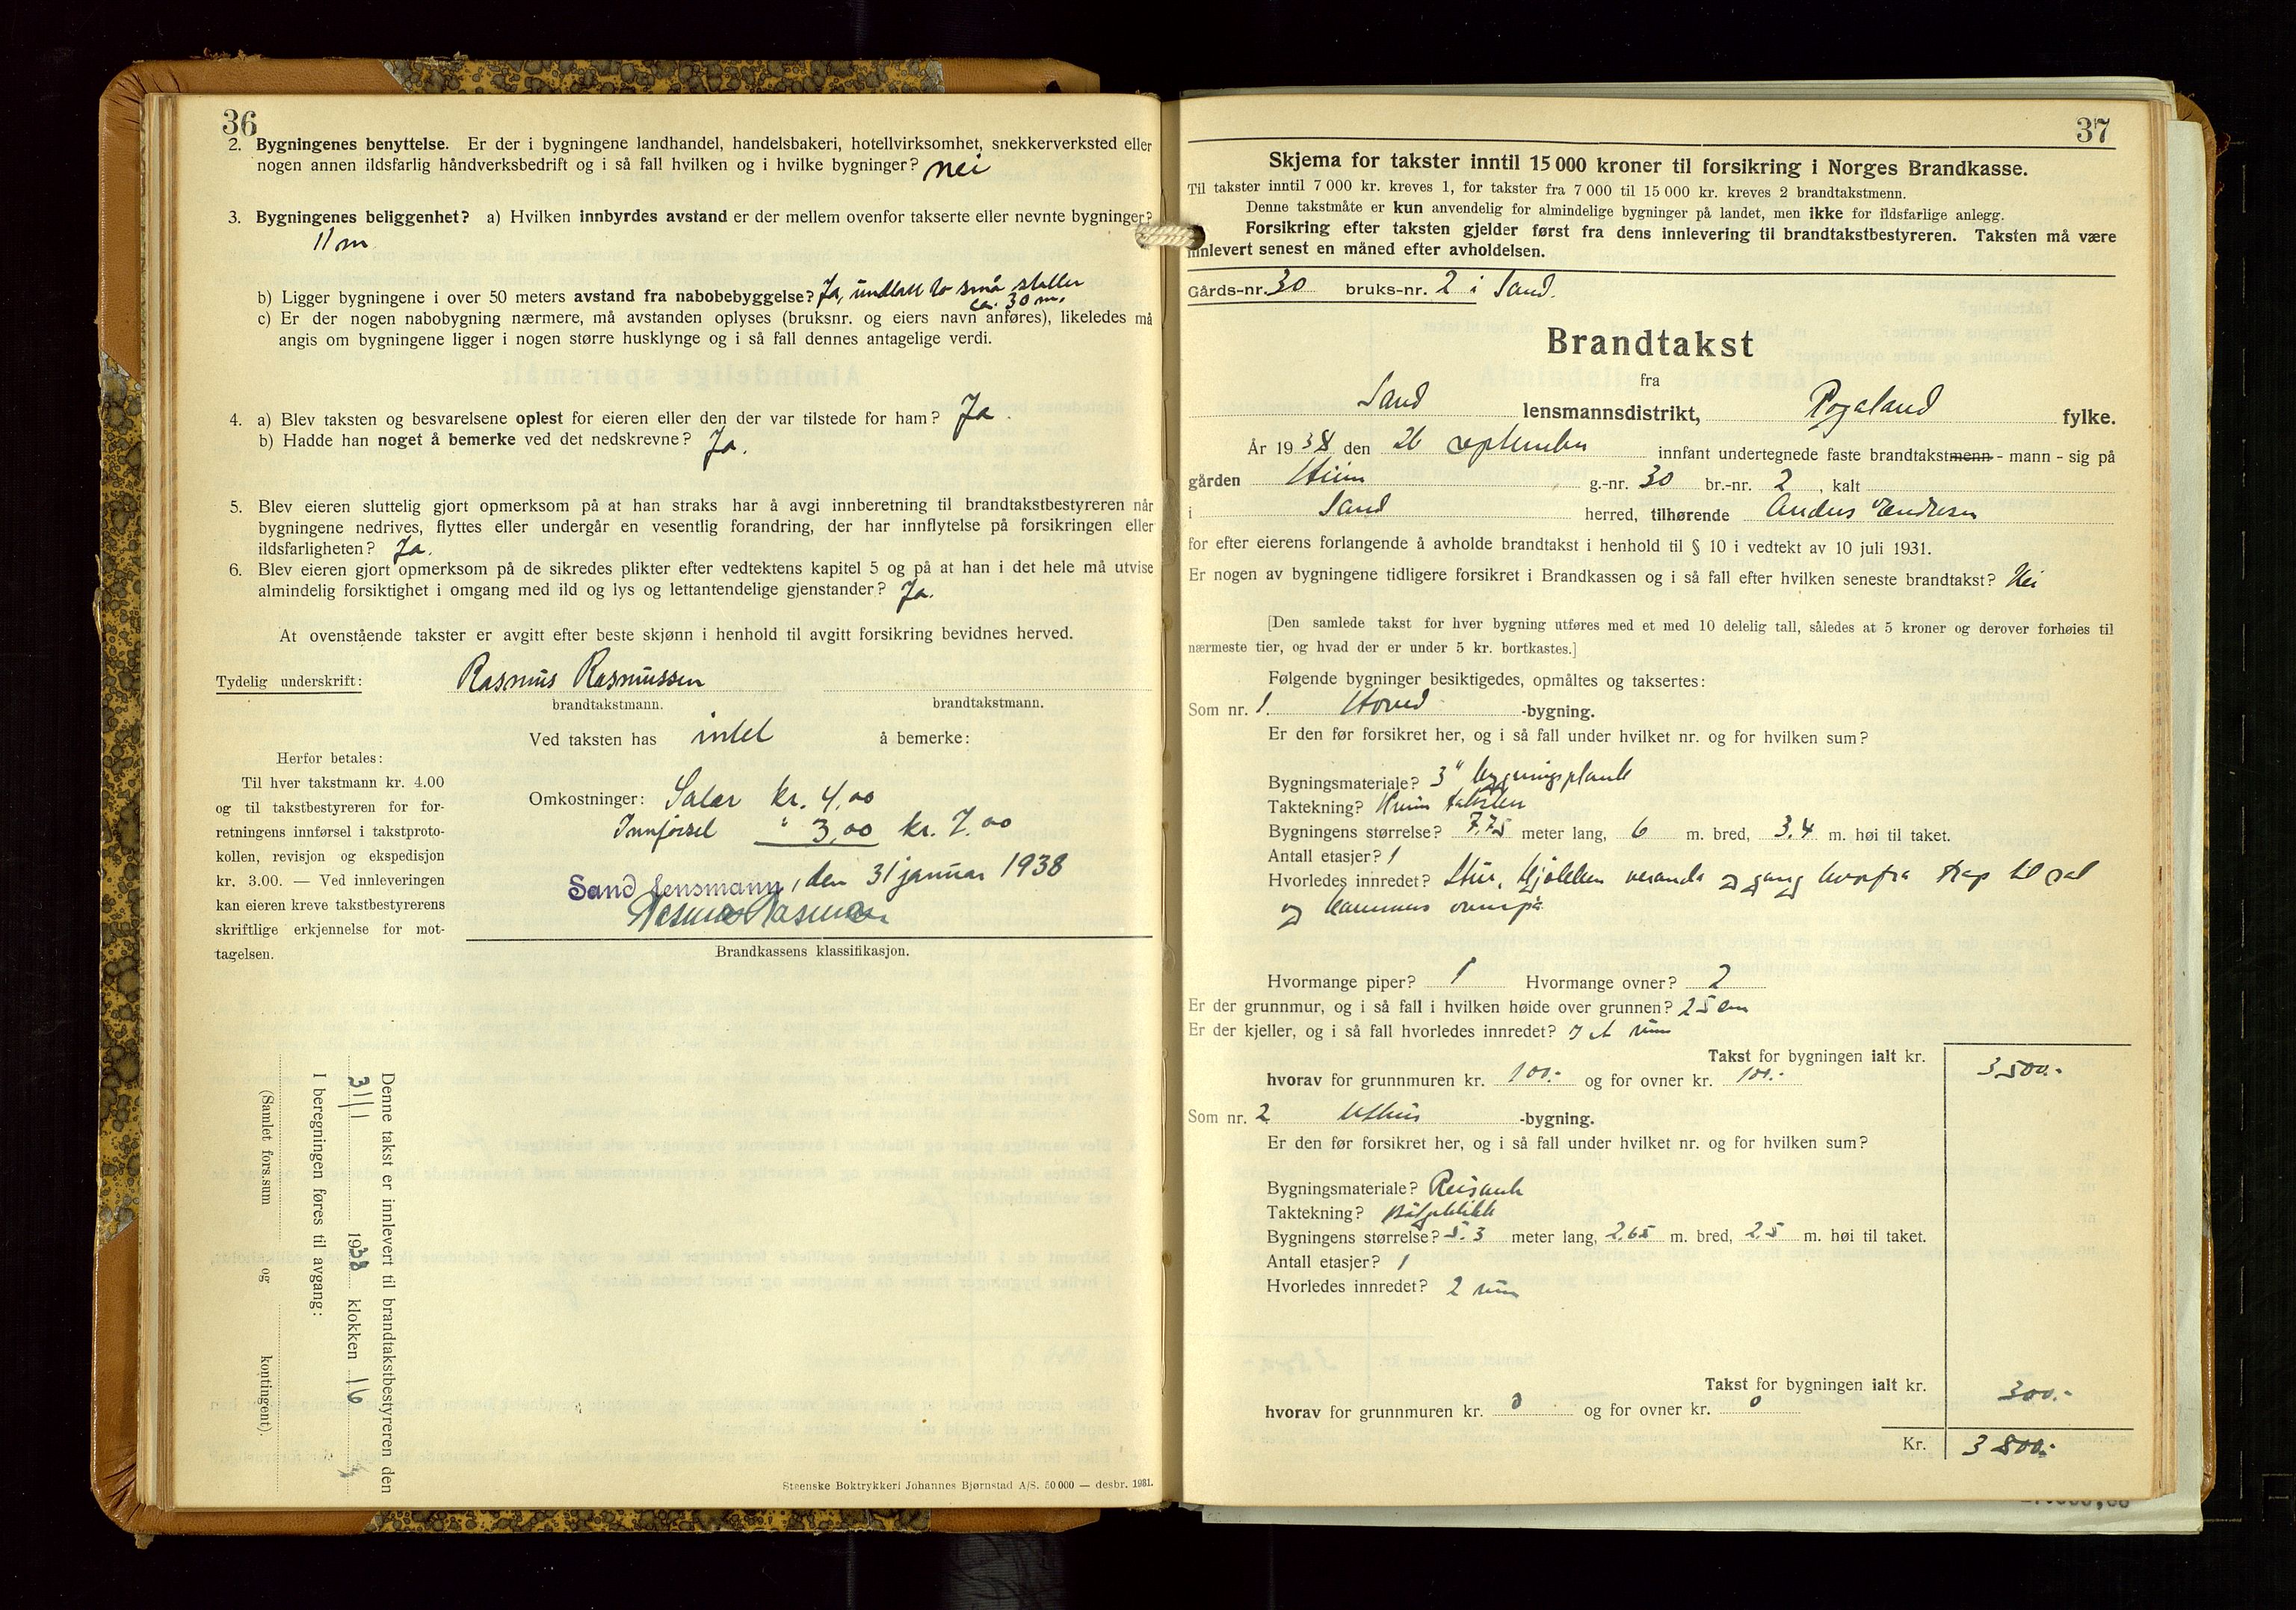 36
2. Bygningenes benyttelse. Er der i bygningene landhandel, handelsbakeri, hotellvirksomhet, snekkerverksted eller
nogen annen ildsfarlig håndverksbedrift og i så fall hvilken og i hvilke bygninger? nei
3. Bygningenes beliggenhet? a) Hvilken innbyrdes avstand er der mellem ovenfor takserte eller nevnte bygninger?
11 m
b) Ligger bygningene i over 50 meters avstand fra nabobebyggelse? Ja, små staller
ca. 30 m.
c) Er der nogen nabobygning nærmere, må avstanden oplyses (bruksnr. og eiers navn anføres), likeledes må
angis om bygningene ligger i nogen større husklynge og i så fall dennes antagelige verdi.
4. a) Blev taksten og besvarelsene oplest for eieren eller den der var tilstede for ham? Ja.
b) Hadde han noget å bemerke ved det nedskrevne? Ja.
5. Blev eieren sluttelig gjort opmerksom på at han straks har å avgi innberetning til brandtakstbestyreren når
bygningene nedrives, flyttes eller undergår en vesentlig forandring, der har innflytelse på forsikringen eller
ildsfarligheten? Ja.
6. Blev eieren gjort opmerksom på de sikredes plikter efter vedtektens kapitel 5 og på at han i det hele må utvise
almindelig forsiktighet i omgang med ild og lys og lettantendelige gjenstander? Ja.
At ovenstående takster er avgitt efter beste skjønn i henhold til avgitt forsikring bevidnes herved.
Tydelig underskrift: Rasmus Rasmussen
brandtakstmann. brandtakstmann.
Ved taksten has intet å bemerke:
Herfor betales:
Til hver takstmann kr. 4.00
og til takstbestyreren for for-
retningens innførsel i takstproto-
kollen, revisjon og ekspedisjon
kr. 3.00. — Ved innleveringen
kan eieren kreve takstbestyrerens
skriftlige erkjennelse for mot-
tagelsen.
Omkostninger: Salær kr. 4,00
Innførsel " 3,00 kr. 7.00
Sand lensmann, den 31 januar 1938
Brandkassens klassifikasjon.
Denne takst er innlevert til brandtakstbestyreren den
31/1 1938 klokken 16
I beregningen føres til avgang:
(Samlet fors.sum og kontingent).
Steenske Boktrykkeri Johannes Bjørnstad A/S. 50 000 — desbr. 1931.
37
Skjema for takster inntil 15 000 kroner til forsikring i Norges Brandkasse.
Til takster inntil 7 000 kr. kreves 1, for takster fra 7 000 til 15 000 kr. kreves 2 brandtakstmenn.
Denne takstmåte er kun anvendelig for almindelige bygninger på landet, men ikke for ildsfarlige anlegg.
Forsikring efter taksten gjelder først fra dens innlevering til brandtakstbestyreren. Taksten må være
innlevert senest en måned efter avholdelsen.
Gårds-nr. 30 bruks-nr. 2 i Sand.
Brandtakst
fra
Sand lensmannsdistrikt, Rogaland fylke.
År 1938 den 26 september innfant undertegnede faste brandtakstmenn - mann - sig på
gården g.-nr. 30 br.-nr. 2, kalt
i Sand herred, tilhørende Anders Endresen
for efter eierens forlangende å avholde brandtakst i henhold til § 10 i vedtekt av 10 juli 1931.
Er nogen av bygningene tidligere forsikret i Brandkassen og i så fall efter hvilken seneste brandtakst? Nei
[Den samlede takst for hver bygning utføres med et med 10 delelig tall, således at 5 kroner og derover forhøies til
nærmeste tier, og hvad der er under 5 kr. bortkastes.]
Følgende bygninger besiktigedes, opmåltes og taksertes:
Som nr. 1. Hoved -bygning.
Er den før forsikret her, og i så fall under hvilket nr. og for hvilken sum?
Bygningsmateriale? 3" bygningsplank
Taktekning?
Bygningens størrelse? 7,75 meter lang, 6 m. bred, 3.4 m. høi til taket.
Antall etasjer? 1
Hvorledes innredet? Stue, kjøkken veranda og gang hvorfra trap til sal
og kammers ovenpå
Hvormange piper? 1 Hvormange ovner? 2
Er der grunnmur, og i så fall i hvilken høide over grunnen? 25 cm
Er der kjeller, og i så fall hvorledes innredet? rum
Takst for bygningen ialt kr. 3500.-
hvorav for grunnmuren kr. 100.- og for ovner kr. 100.-
Som nr. 2 Uthus -bygning.
Er den før forsikret her, og i så fall under hvilket nr. og for hvilken sum?
Bygningsmateriale?
Taktekning? Bølgeblikk
Bygningens størrelse? 5.3 meter lang, 2,65 m. bred, 2.5 m. høi til taket.
Antall etasjer? 1
Hvorledes innredet? 2 rum
Takst for bygningen ialt kr. 300.-
hvorav for grunnmuren kr. 0 og for ovner kr. 0
Kr. 3800.-